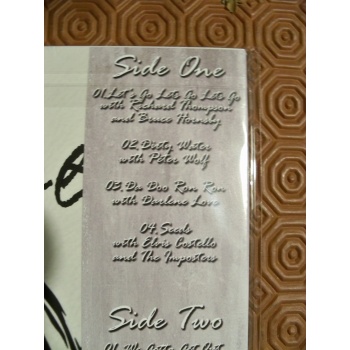 Side One
01.Let's Go Lets Go Lets Go
with Richard Thompson
and Bruce Hornsby
02.Dirty Water
with Peter Wolf
03.Da Doo Ron Ron
with Darlene Love
04.Seeds
with Elvis Costello
and The Imposters
Side Two
01.We Gotta Get Out